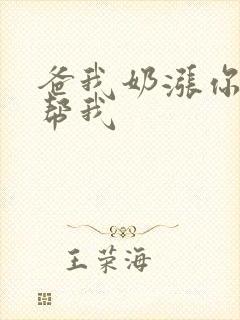 爸我奶漲你
帮我
王荣海